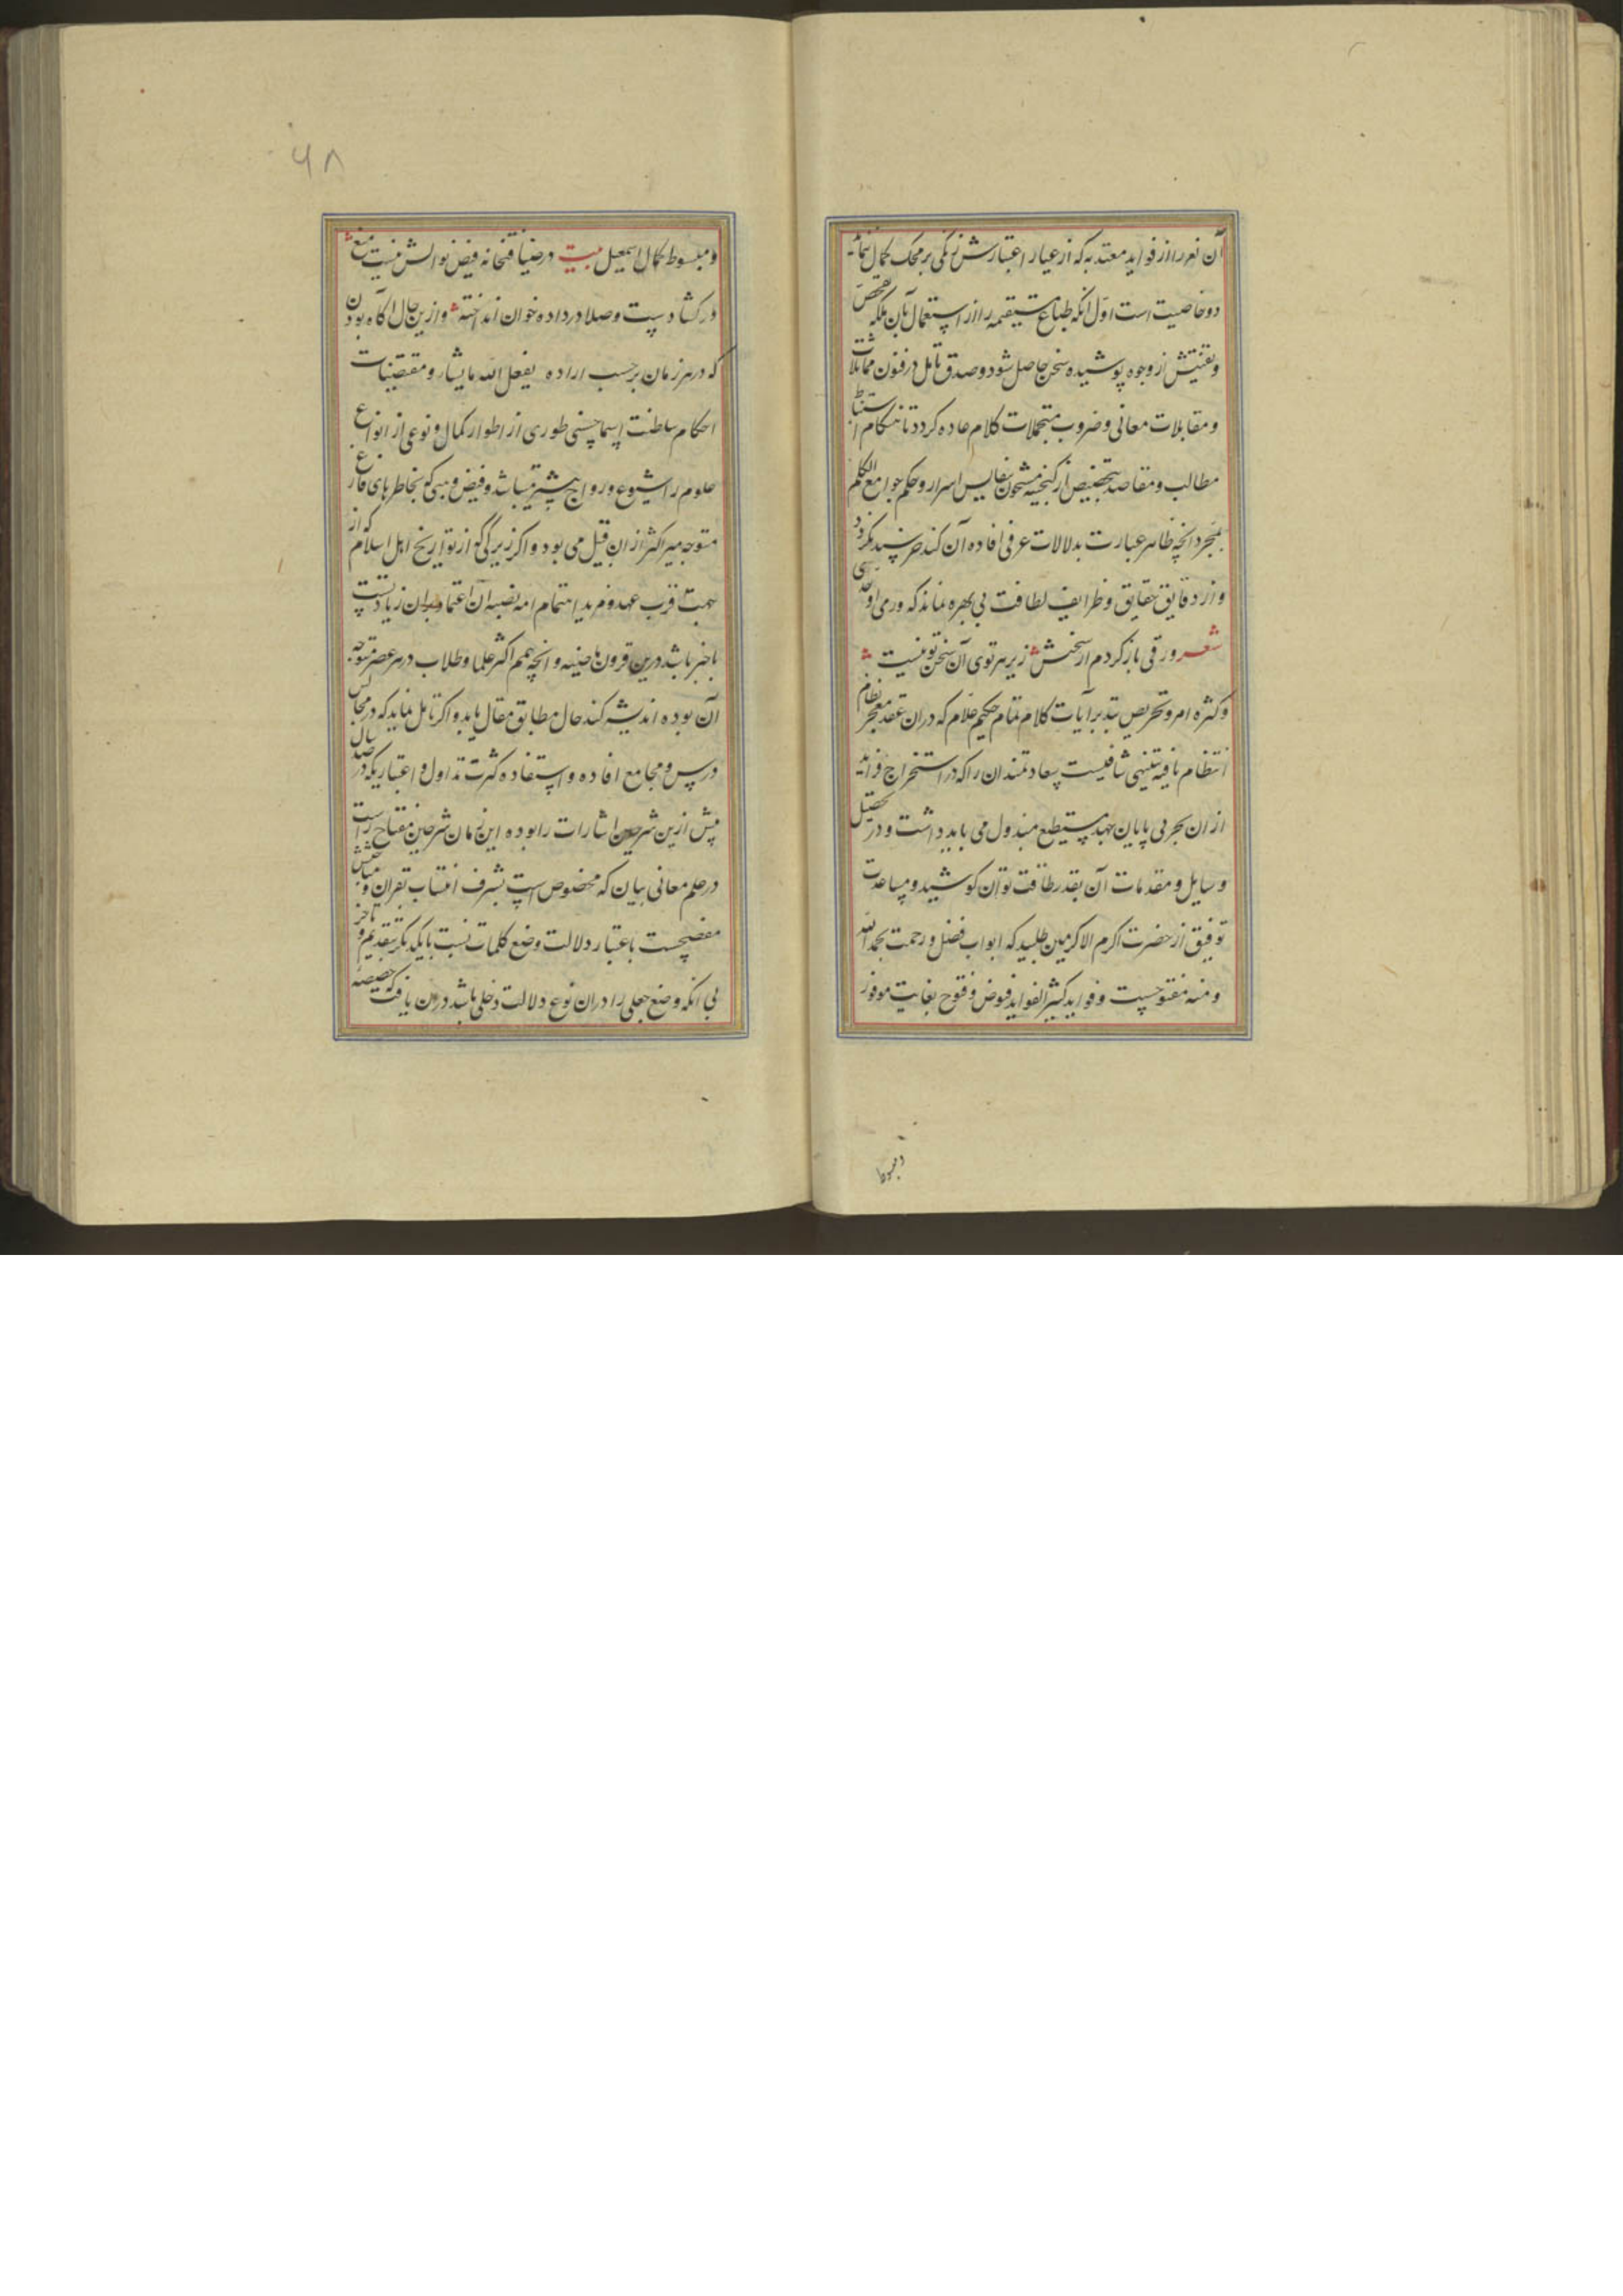 آن نعر را از فواید معتدبه که از عیار اعتبارش زنکی بر محک کمال نماید
دو خاصیت است اول انکه طباع مستقیمه را از استعمال بآن ملکه تفحص
و تفتیش از وجوه پوشیده سخن حاصل شود و صدق تامل در فنون مماثلات
و مقابلات معانی و ضروب محتملات کلام عاده کردد تا هنکام استنباط
مطالب و مقاصد از کنجینه مشحون بنفایس اسرار و حکم جوامع الکلم
بمجرد انچه ظاهر عبارت بدلالات عرفی افاده آن کند خرسند نکردد
و از دقایق حقایق و ظرایف لطافت بی بهره نماند که وری اوحدی
شعر ورقی باز کردم از سخنش زیر هر توی آن سخن تویست
و کثره امر و تحریص بتدبر آیات کلام تمام حکیم علام که دران عقد معجز نظام
انتظام یافته تنبهی شافیست سعادتمندان را که در استخراج فراید
از ان بحر بی پایان جهد مستطیع مبذول می باید داشت و در تحصیل
وسایل و مقدمات آن بقدر طاقت توان کوشید و مساعدت
توفیق از حضرت اکرم الاکرمین طلبید که ابواب فضل و رحمت بحمد الله
و منه مفتوحست و فواید کثیر الفواید فیوض و فتوح بغایت موفور
و مبسوط
۶۸
و مبسوط کمال اسمعیل بیت در ضیافتخانه فیض نوالش نیست منع
در کشادست و صلا در داده خوان انداخته و ازین حال اکاه بودن
که در هر زمان بر حسب اراده یفعل الله ما یشاء و مقتضیات
احکام سلطنت اسما حسنی طوری از اطوار کمال و نوعی از انواع
علوم را شیوع و رواج بیشتر میباشد و فیض وهبی کو بخاطرهای فارغ
متوجه میر اکثر از ان قبل می بود و اکر زیرکی که از تواریخ اهل اسلام که از
جهت قرب عهد و مزید اهتمام ائمه بضبط آن اعتماد بران زیادتست
با خبر باشد درین قرون ماضیه و انچه همم اکثر علما و طلاب در هر عصر متوجه
آن بوده اندیشه کند حال مطابق مقال یابد و اکر تامل نماید که در مجالس
درس و مجامع افاده و استفاده کثرت تداول و اعتباریکه در صد سال
پیش ازین شرحین اشارات را بوده این زمان شرحین مفتاح راست
در علم معانی بیان که مخصوص است بشرف انتساب بقران و مباحثش
مفصحست باعتبار دلالت وضع کلمات نسبت بایکدیکر بتقدیم و تاخر
بی انکه وضع جعلی را دران نوع دلالت دخلی باشد دران یافت که خصیصه